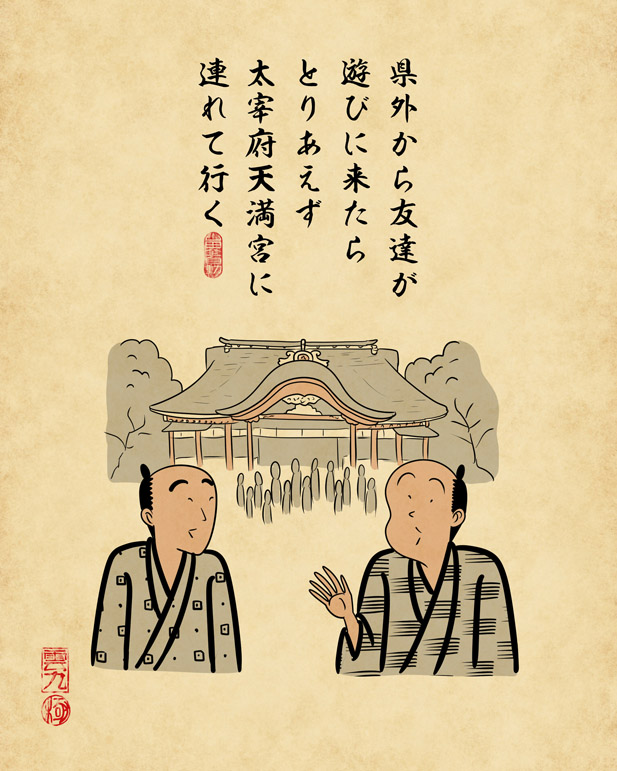 県外から友達が
遊びに来たら
とりあえず
太宰府天満宮に
連れて行く